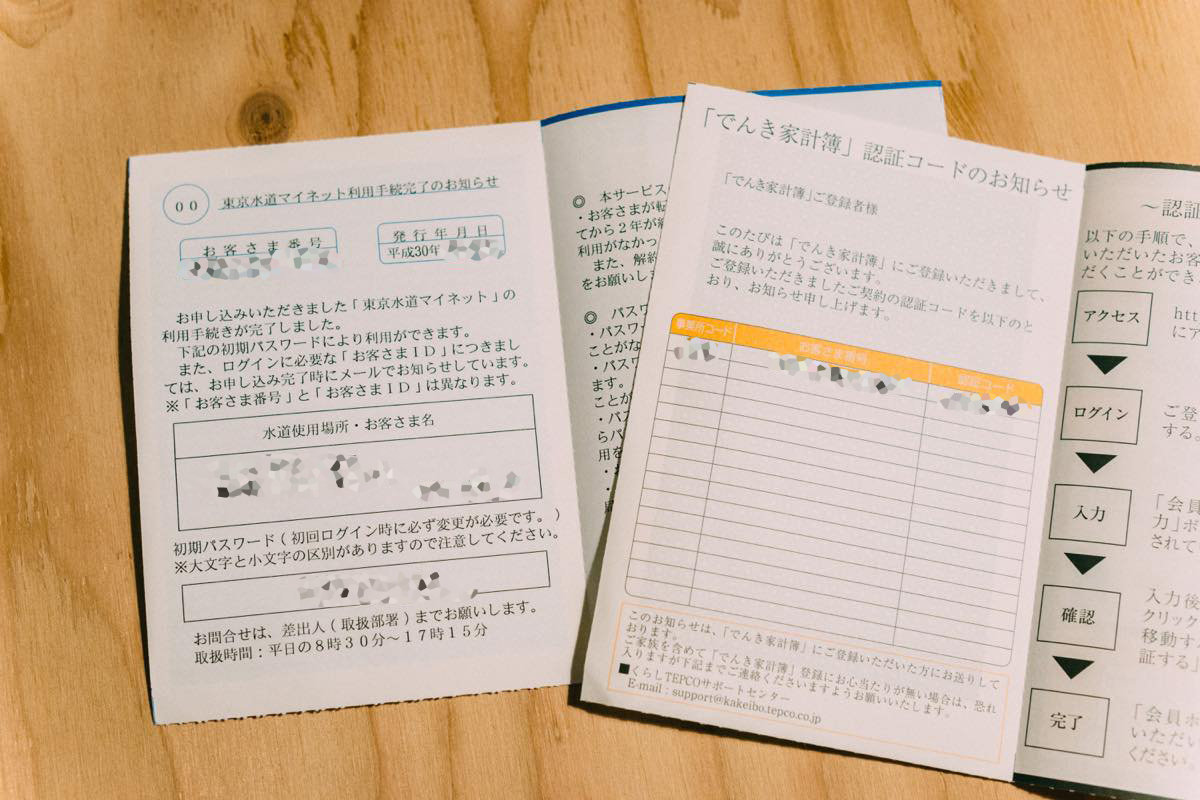 ００
東京水道マイネット利用手続完了のお知らせ
お客さま番号
発行年月日
平成30年
お申し込みいただきました「東京水道マイネット」の
利用手続きが完了しました。
下記の初期パスワードにより利用ができます。
また、ログインに必要な「お客さまＩＤ」につきまし
ては、お申し込み完了時にメールでお知らせしています。
※「お客さま番号」と「お客さまＩＤ」は異なります。
水道使用場所・お客さま名
初期パスワード(初回ログイン時に必ず変更が必要です。)
※大文字と小文字の区別がありますので注意してください。
お問合せは、差出人(取扱部署)までお願いします。
取扱時間：平日の８時３０分～１７時１５分
◎ 本サービス
・お客さまが転
てから２年が経
利用がなかっ
また、解約
をお願いしま
◎ パスワード
・パスワー
ことがな
・パスワ
ます。
ことが
・パ
らパ
用を
「でんき家計簿」認証コードのお知らせ
「でんき家計簿」ご登録者様
このたびは「でんき家計簿」にご登録いただきまして、
誠にありがとうございます。
ご登録いただきましたご契約の認証コードを以下のと
おり、お知らせ申し上げます。
事業所コード
お客さま番号
認証コード
このお知らせは、「でんき家計簿」にご登録いただいた方にお送りして
おります。
ご家族を含めて「でんき家計簿」登録にお心当たりが無い場合は、恐れ
入りますが下記までご連絡くださいますようお願いいたします。
■くらしTEPCOサポートセンター
E-mail：support@kakeibo.tepco.co.jp
～認証
以下の手順で、
いただいたお客
だくことができ
アクセス
htt
にア
ログイン
ご登
する。
入力
「会員
力」ボ
されて
確認
入力後
クリック
移動す
証する
完了
「会員ホ
いただい
ください。